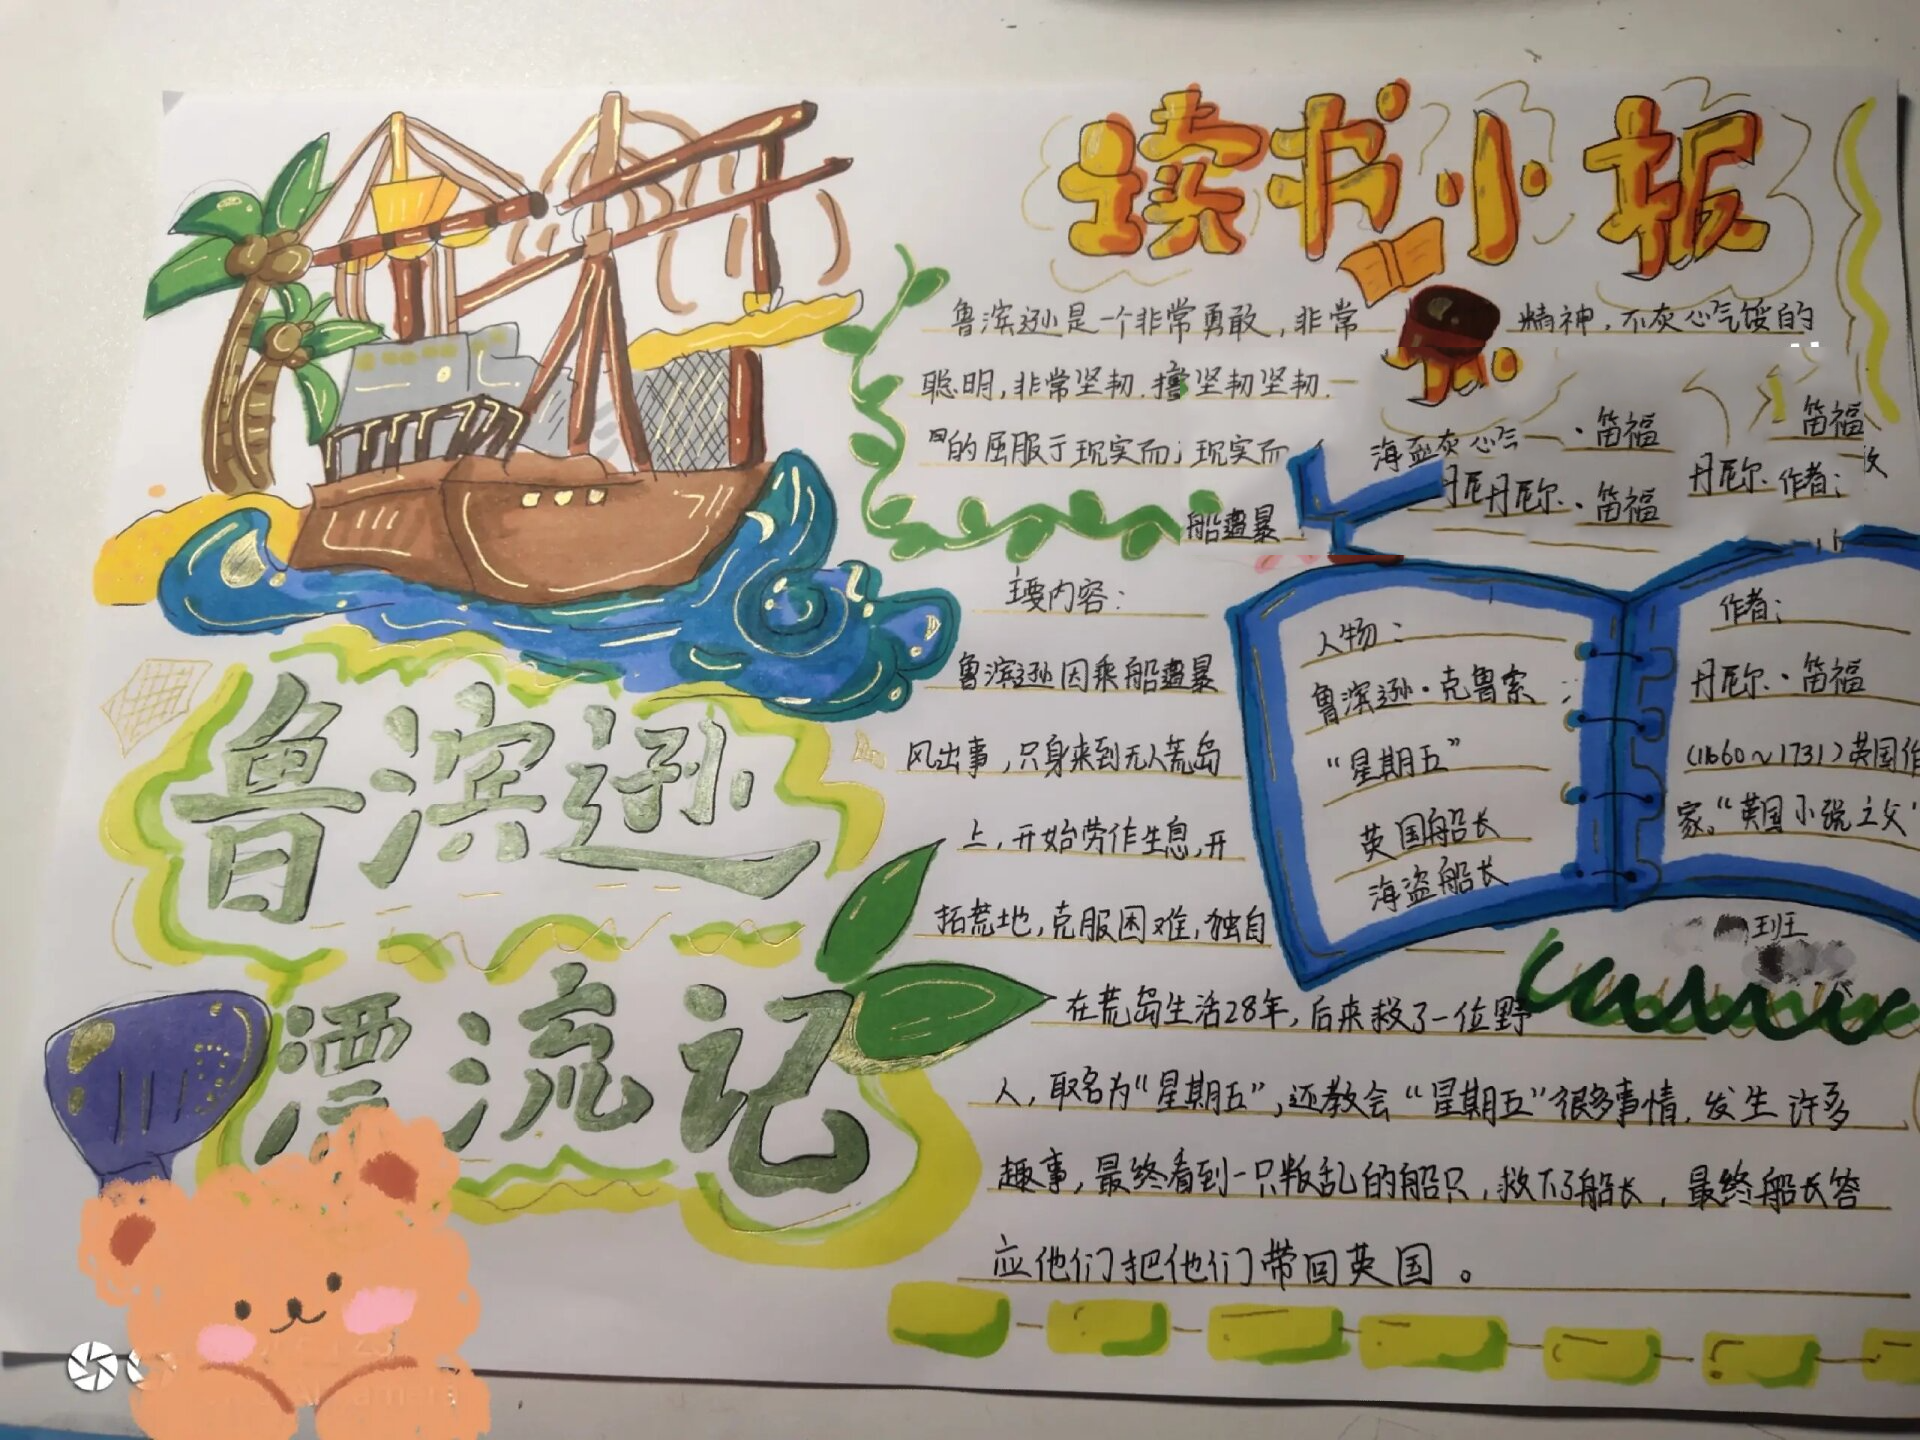 读书小报
鲁滨逊是一个非常勇敢，非常
精神，不灰心气馁的
聪明，非常坚韧.撞坚韧坚韧.
的屈服于现实而；现实而
海盗灰心气一·笛福
笛福
丹尼丹尼尔·笛福
丹尼尔·作者：
船遭暴
主要内容：
鲁滨逊因乘船遭暴
风出事，只身来到无人荒岛
上，开始劳作生息，开
拓荒地，克服困难，独自
在荒岛生活28年，后来救了一位野
人，取名为“星期五”，还教会“星期五”很多事情，发生许多
趣事，最终看到一只叛乱的船只，救下了船长，最终船长答
应他们把他们带回英国。
人物：
鲁滨逊·克鲁索
“星期五”
英国船长
海盗船长
作者：
丹尼尔·笛福
(1660～1731)英国作
家。“英国小说之父”
班
鲁滨逊
漂流记